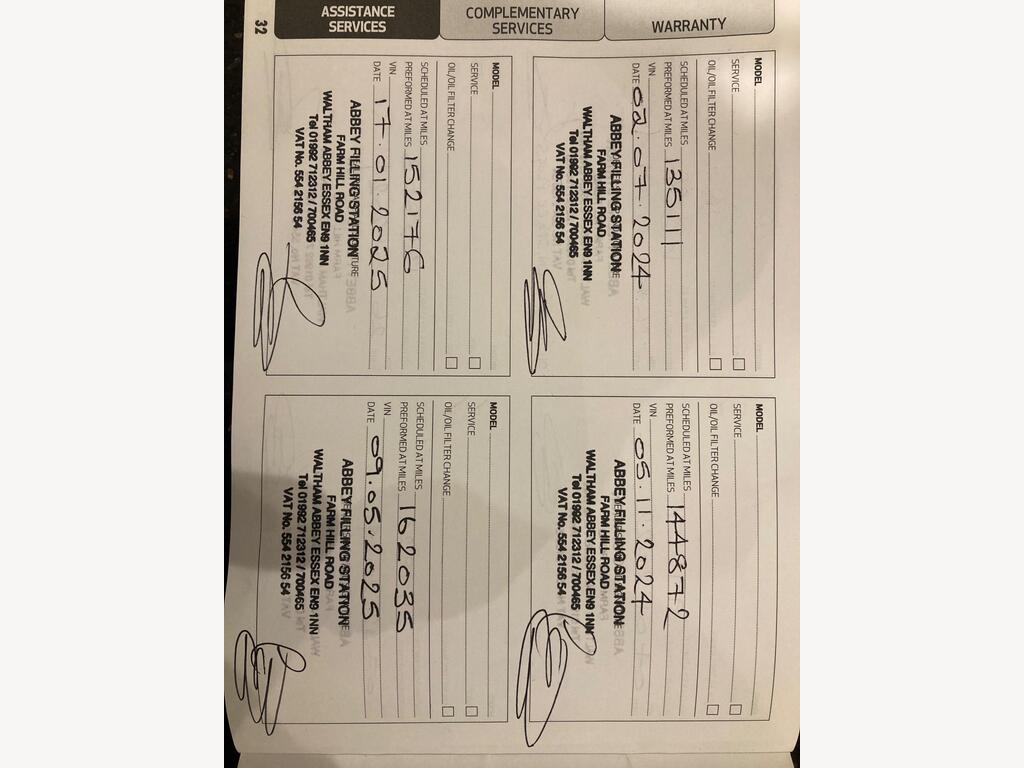 ASSISTANCE
SERVICES
COMPLEMENTARY
SERVICES
WARRANTY
MODEL
SERVICE
OIL/OIL FILTER CHANGE
SCHEDULED AT MILES
PREFORMED AT MILES 135111
VIN
DATE 02.07.2024
ABBEY FILLING STATION
FARM HILL ROAD
WALTHAM ABBEY ESSEX EN9 1NN
Tel 01992 712312 / 700465
VAT No. 554 2156 54
MODEL
SERVICE
OIL/OIL FILTER CHANGE
SCHEDULED AT MILES
PREFORMED AT MILES 144872
VIN
DATE 05.11.2024
ABBEY FILLING STATION
FARM HILL ROAD
WALTHAM ABBEY ESSEX EN9 1NN
Tel 01992 712312 / 700465
VAT No. 554 2156 54
MODEL
SERVICE
OIL/OIL FILTER CHANGE
SCHEDULED AT MILES
PREFORMED AT MILES 152176
VIN
DATE 17.01.2025
ABBEY FILLING STATION
FARM HILL ROAD
WALTHAM ABBEY ESSEX EN9 1NN
Tel 01992 712312 / 700465
VAT No. 554 2156 54
MODEL
SERVICE
OIL/OIL FILTER CHANGE
SCHEDULED AT MILES
PREFORMED AT MILES 162035
VIN
DATE 09.05.2025
ABBEY FILLING STATION
FARM HILL ROAD
WALTHAM ABBEY ESSEX EN9 1NN
Tel 01992 712312 / 700465
VAT No. 554 2156 54
32